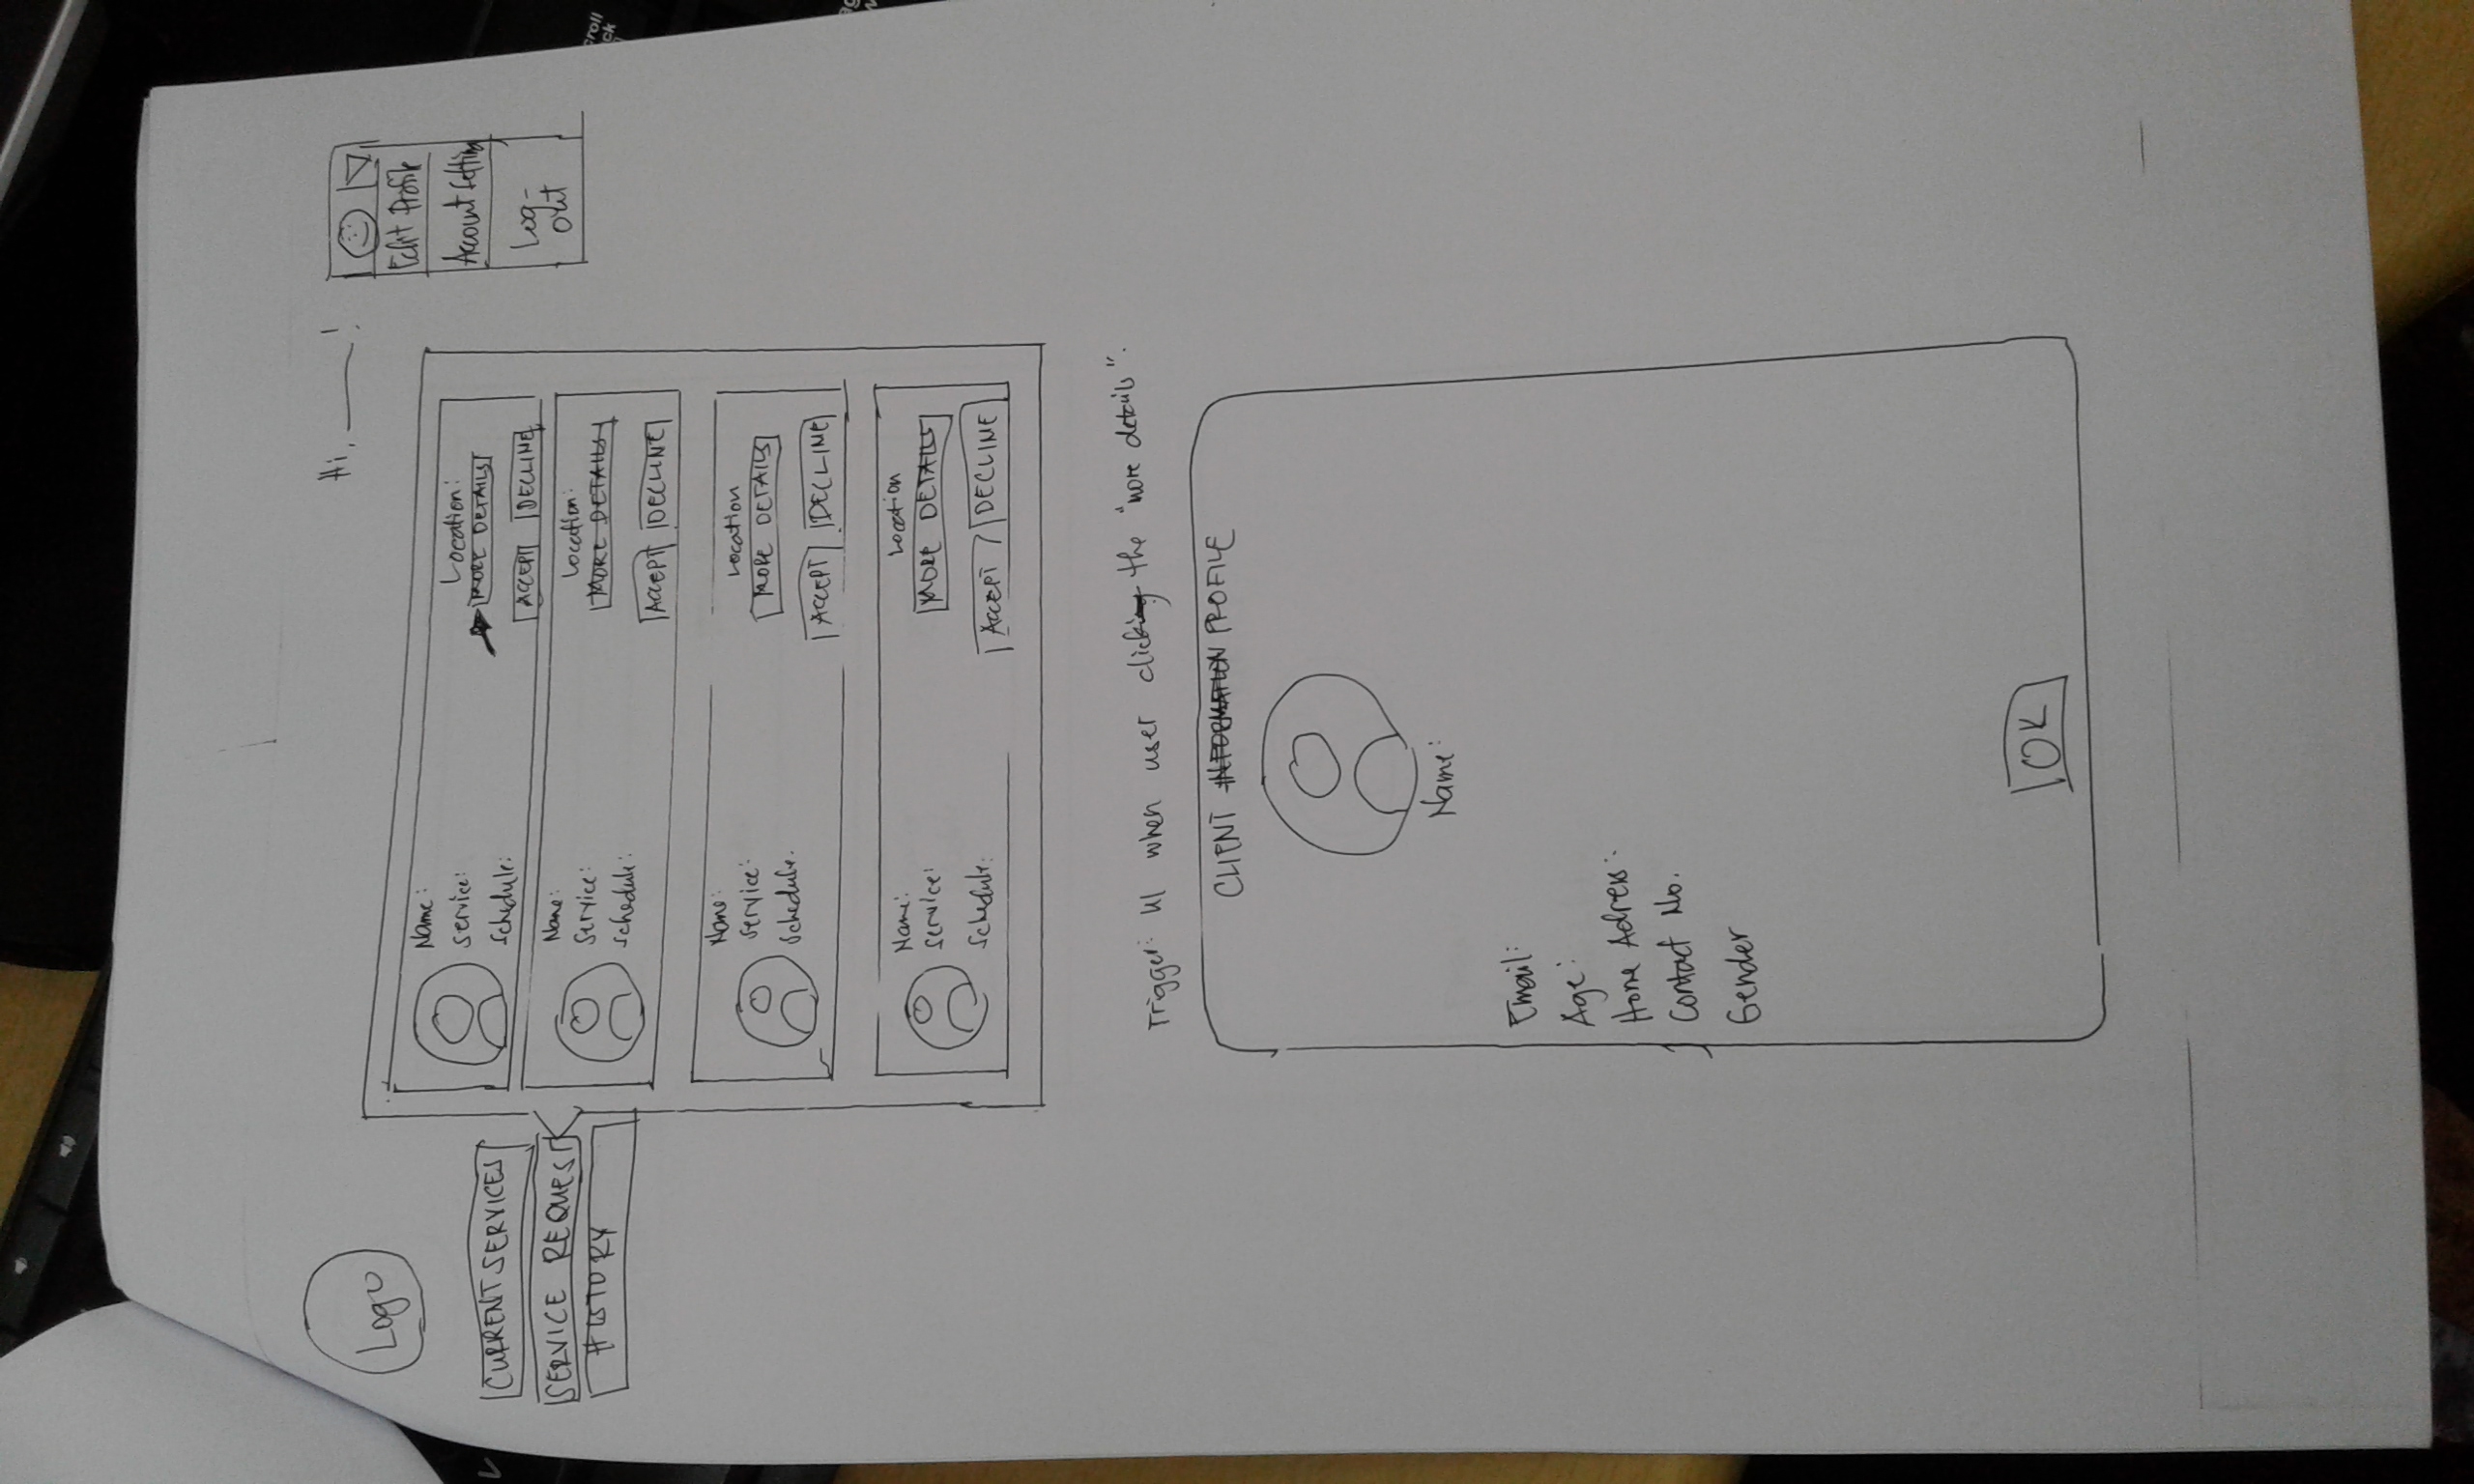 Logo
Hi, ____!
Edit Profile
Account Setting
Log-
out
CURRENT SERVICES
SERVICE REQUEST
HISTORY
Name:
Service:
Schedule:
Location:
MORE DETAILS
ACCEPT DECLINE
Name:
Service:
Schedule:
Location:
MORE DETAILS
ACCEPT DECLINE
Name:
Service:
Schedule.
Location
MORE DETAILS
ACCEPT DECLINE
Name:
Service:
Schedule:
Location
MORE DETAILS
ACCEPT DECLINE
Trigger: UI when user clicking the "more details".
CLIENT INFORMATION PROFILE
Name:
Email:
Age:
Home Adress:
Contact No.
Gender
OK